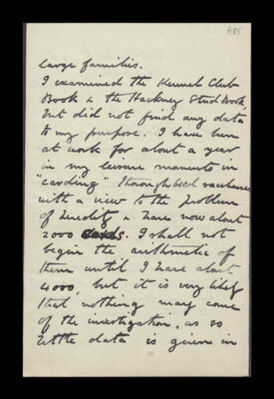 1185
large families.
I examined the Kennel Club
Book & the Hackney Stud Book,
but did not find any data
to my purpose. I have been
at work for about a year
in my leisure moments in
"carding" thoroughbred racehorses
with a view to the problem
of heredity & have now about
2000 cards. I shall not
begin the arithmetic of
them until I have about
4000, but it is very likely
that nothing may come
of the investigation, as so
little data is given in